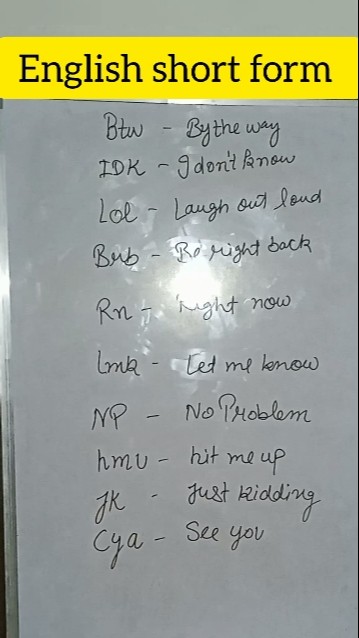 English short form
Btw - By the way
IDK - I don't know
Lol - Laugh out loud
Brb - Be right back
Rn - Right now
Lmk - Let me know
NP - No Problem
hmu - hit me up
JK - Just kidding
Cya - See you